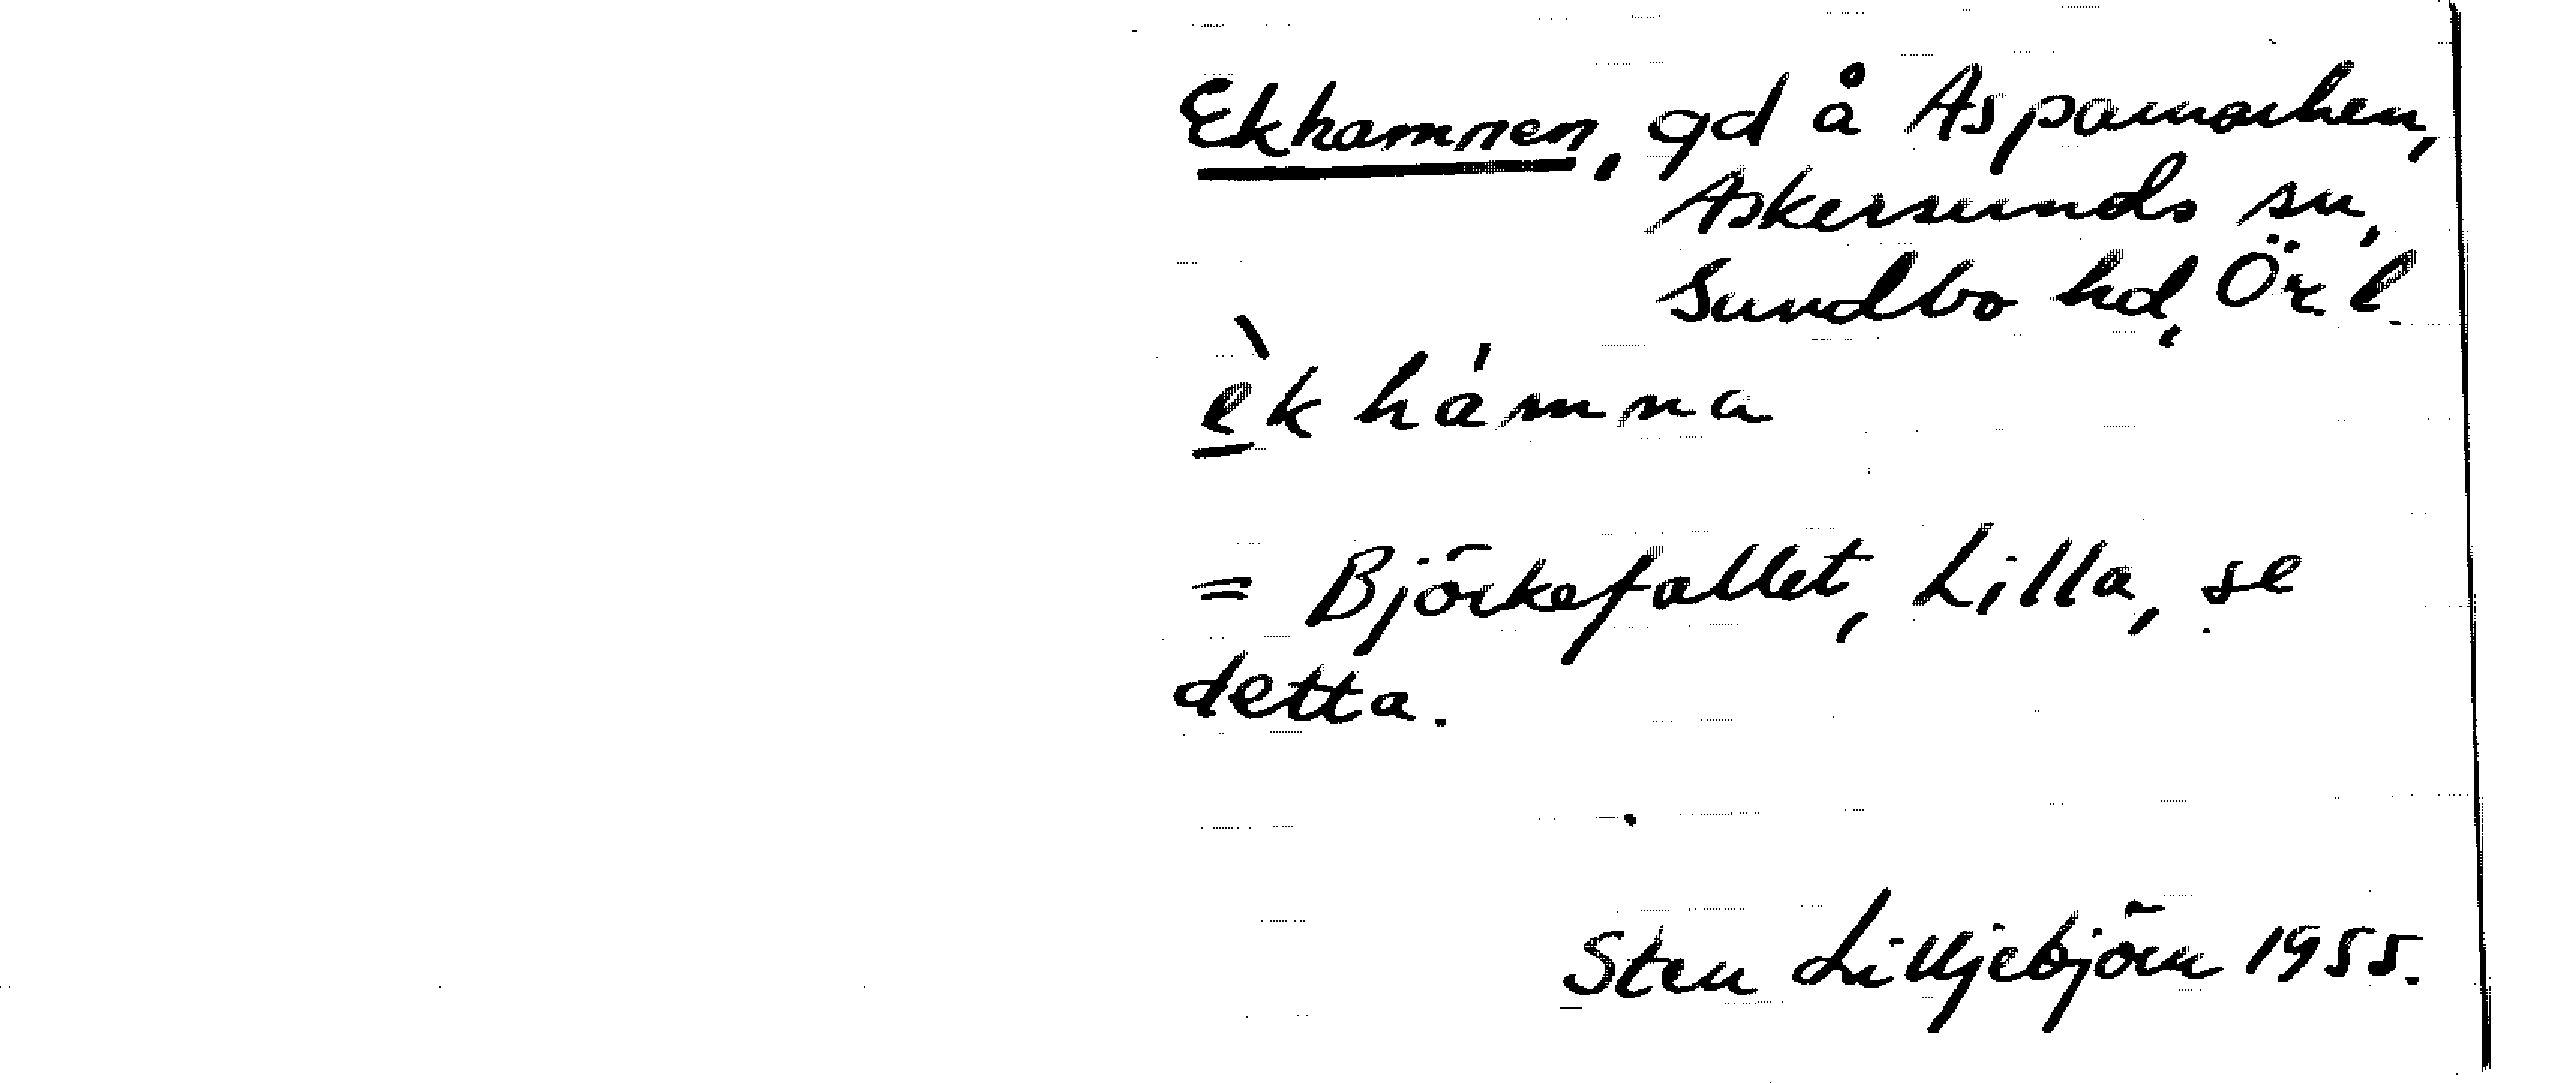 Ekhamnen, gd å Aspamarken,
Askersunds sn,
Sundbo hd, Ör l
è̲k hámna
= Björkefallet, Lilla, se
detta.
Sten Lilljebjörn 1955.